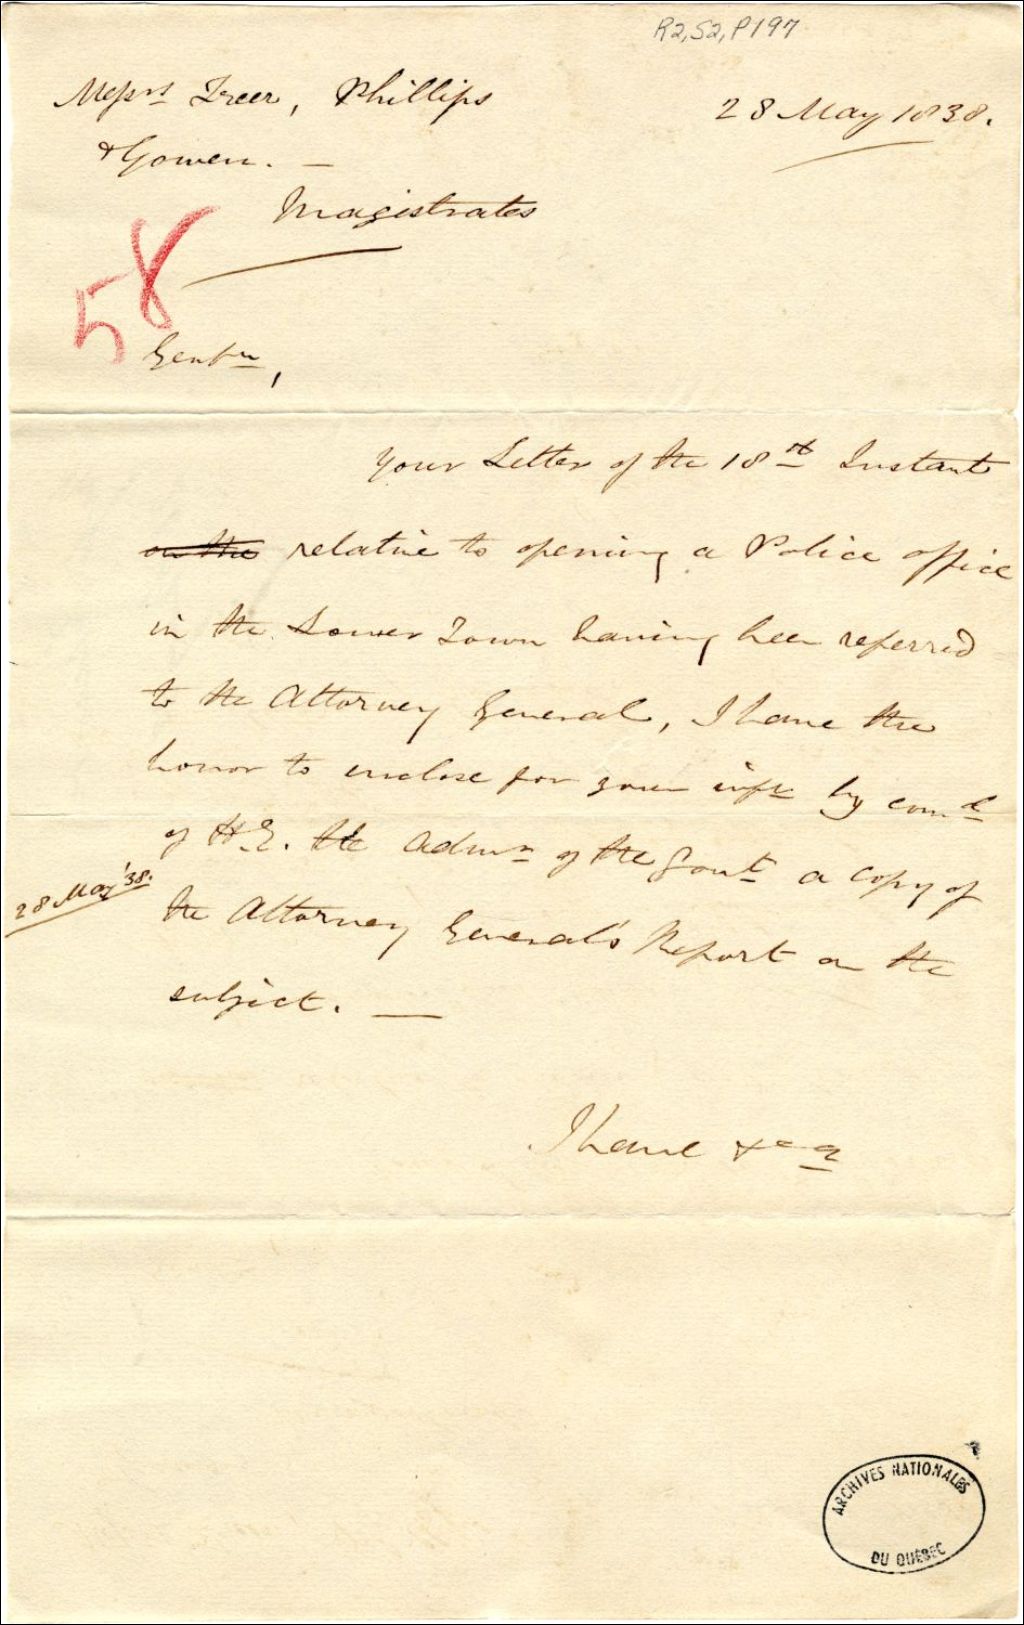 R2,S2,P197
Messrs Freer, Phillips
28 May 1838.
& Gowen. —
Magistrates
58
Gentn,
Your Letter of the 18th Instant
on the relative to opening a Police office
in the Lower Town having been referred
to the Attorney General, I have the
honor to enclose for your infn by comd
of H.E. the Admn of the Govt a copy of
28 May '38.
the Attorney General's Report on the
subject. —
I have &ca
ARCHIVES NATIONALES
DU QUÉBEC